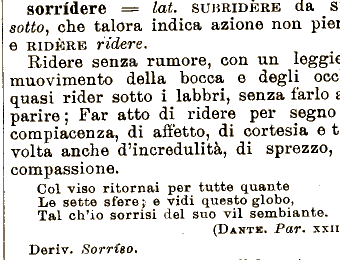 sorrídere = lat. SUBRIDÈRE da s
sotto, che talora indica azione non pien
e RIDÈRE ridere.
Ridere senza rumore, con un leggie
muovimento della bocca e degli occ
quasi rider sotto i labbri, senza farlo a
parire; Far atto di ridere per segno
compiacenza, di affetto, di cortesia e t
volta anche d'incredulità, di sprezzo,
compassione.
Col viso ritornai per tutte quante
Le sette sfere; e vidi questo globo,
Tal ch'io sorrisi del suo vil sembiante.
(DANTE. Par. XXII
Deriv. Sorríso.